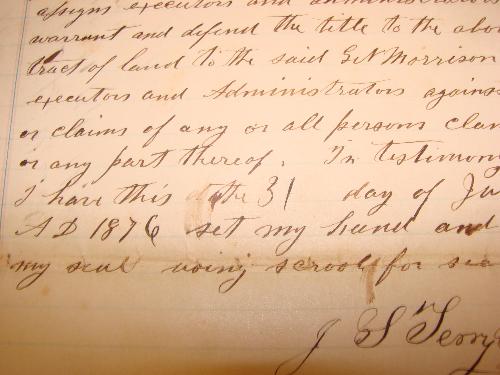 assigns executors and administrators
warrant and defend the title to the abo
tract of land to the said G N Morrison
executors and Administrators agains
or claims of any or all persons clai
or any part thereof. In testimon
I have this the 31 day of Ju
AD 1876 set my hand and
my seal using scrool for sea
J Terry